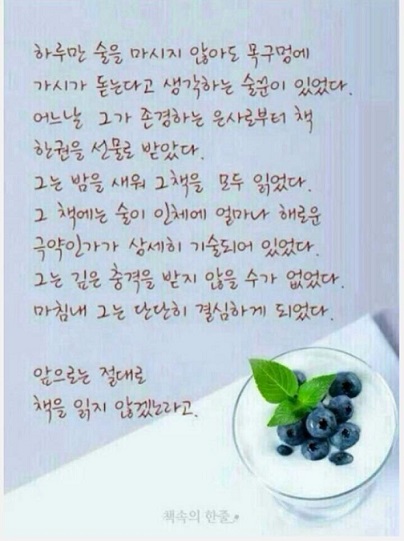 하루만 술을 마시지 않아도 목구멍에
가시가 돋는다고 생각하는 술꾼이 있었다.
어느날 그가 존경하는 은사로부터 책
한권을 선물로 받았다.
그는 밤을 새워 그책을 모두 읽었다.
그 책에는 술이 인체에 얼마나 해로운
극약인가가 상세히 기술되어 있었다.
그는 깊은 충격을 받지 않을 수가 없었다.
마침내 그는 단단히 결심하게 되었다.
앞으로는 절대로
책을 읽지 않겠노라고.
책속의 한줄